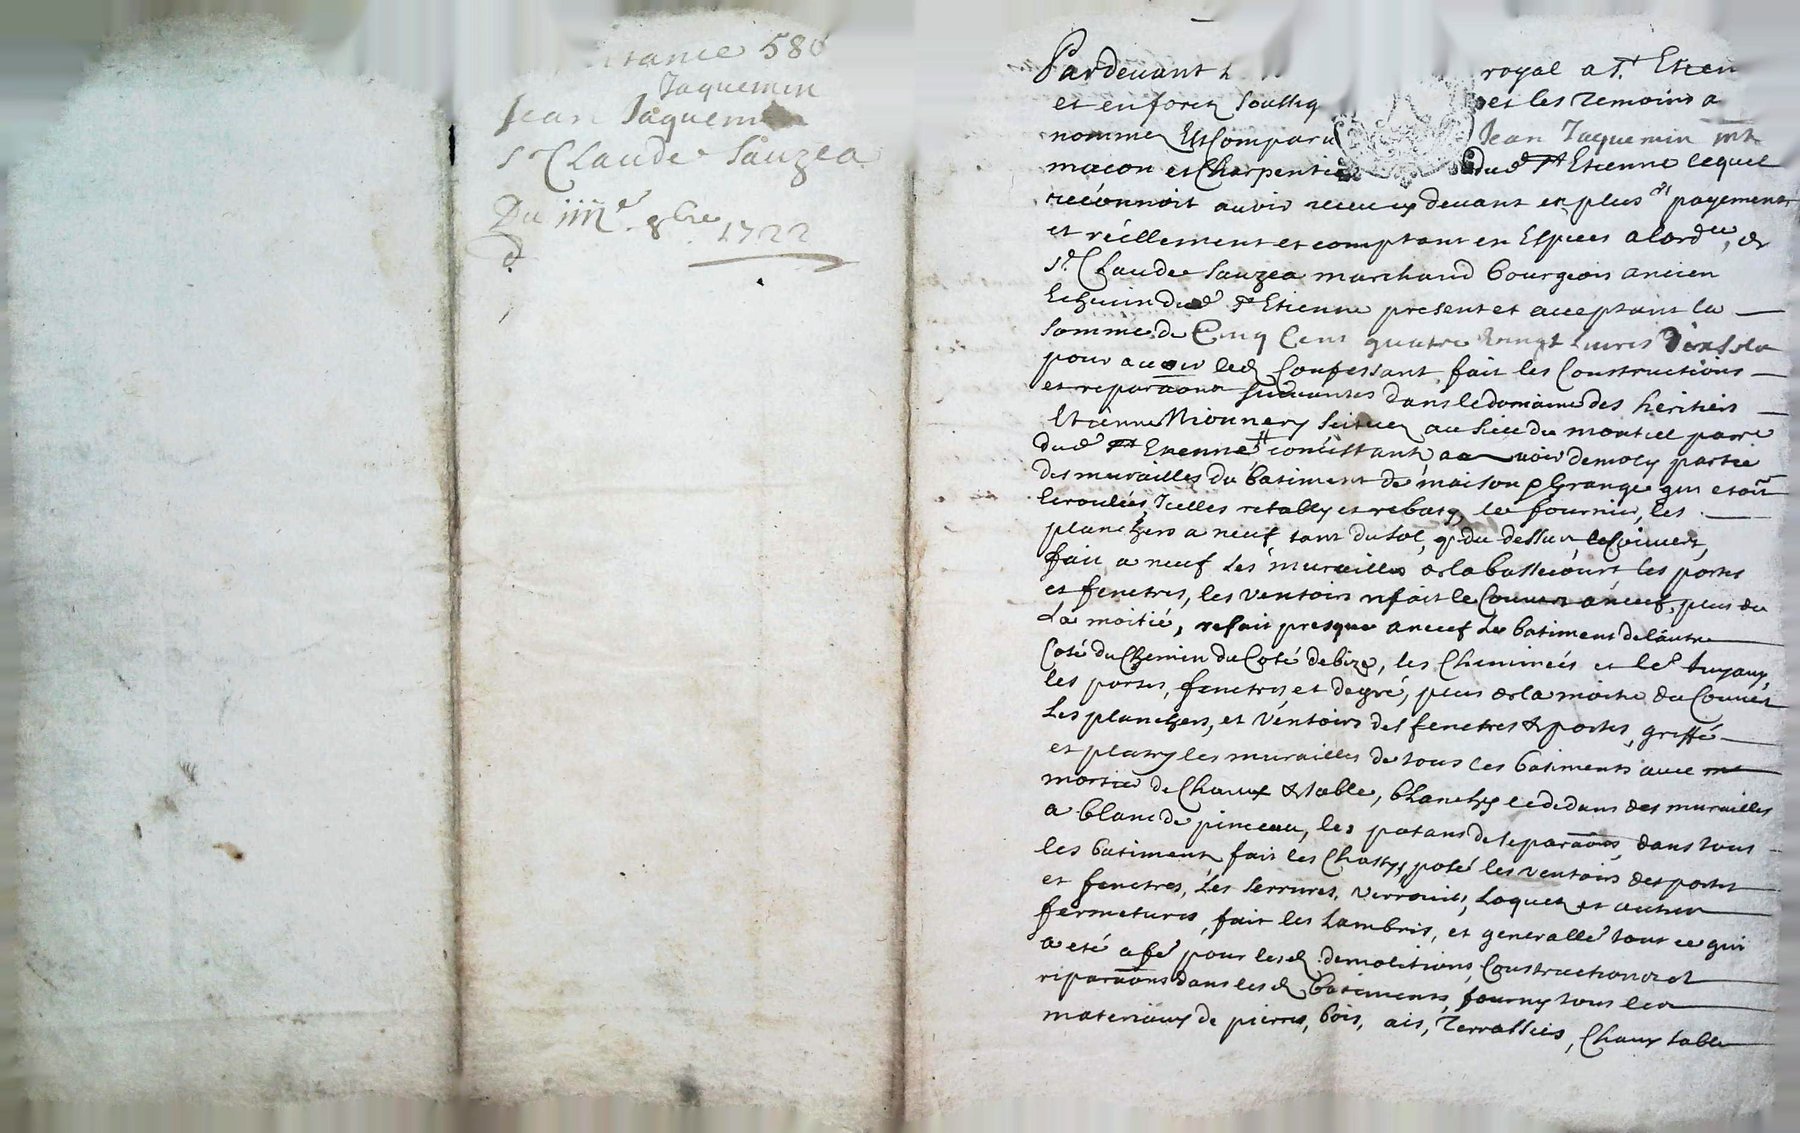 tance 580
Jaquemin
Jean Jaquemin
Sr Claude Sauzea
Du iiiie 8bre 1722
Pardevant royal a St Etien
et en forez soussig et les temoins a
nommez Est Comparu Jean Jaquemin mtre
macon et Charpentier dud St Etienne lequel
reconnoit avoir receu cy devant en plusrs payements
et réellement et comptant en Especes a lordre, de
Sr Claude Sauzea marchand bourgeois ancien
Echevin dud St Etienne present et acceptant la
somme de Cinq Cens quatre vingt livres dix sols
pour avoir led Confessant fait les Constructions
et reparaons suivantes dans le domaine des heritiers
Etienne Mionnery scituez au lieu du montiel parre
dud St Etienne consistant a avoir demoly partie
des murailles du batiment de maison & Grange qui etoit
Ecroulées, Icelles retably et rebaty, le fournier, les
planchers a neuf tant du sol, q du dessus, le Couvert,
fait a neuf les murailles de la bassecourt les portes
et fenetres, les ventoirs refait le Couvert a neuf, plus de
La moitié, refait presque a neuf le batiment de lautre
Coté du Chemin du Coté de bize, les Cheminées et les tuyaux,
les portes, fenetres et degré, plus de la moitie du Couvert
Les planchers, et ventoirs des fenetres & portes, griffé
et platry les murailles de tous les batiments avec
mortier de Chaux & sable, blanchy le dedans des murailles
a blanc de pinceau, les patans de separaons dans tous
les batiments fait les Chassys, posé les ventoirs des portes
et fenetres, Les Serrures, verrouils, Loquets et autres
fermetures, fait les Lambris, et generalle tout ce qui
a eté a fe pour lesd demolitions, Constructions et
reparaons dans lesd batiments, fourny tous les
materiaux de pierres, bois, ais, Terrasses, Chaux sable